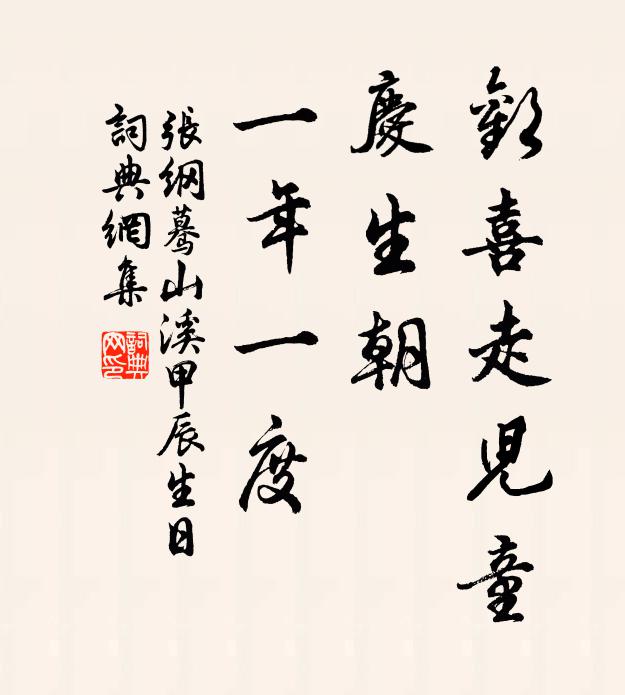 歡喜走兒童
慶生朝
一年一度
張綱驀山溪甲辰生日
詞典網集
詞典網印